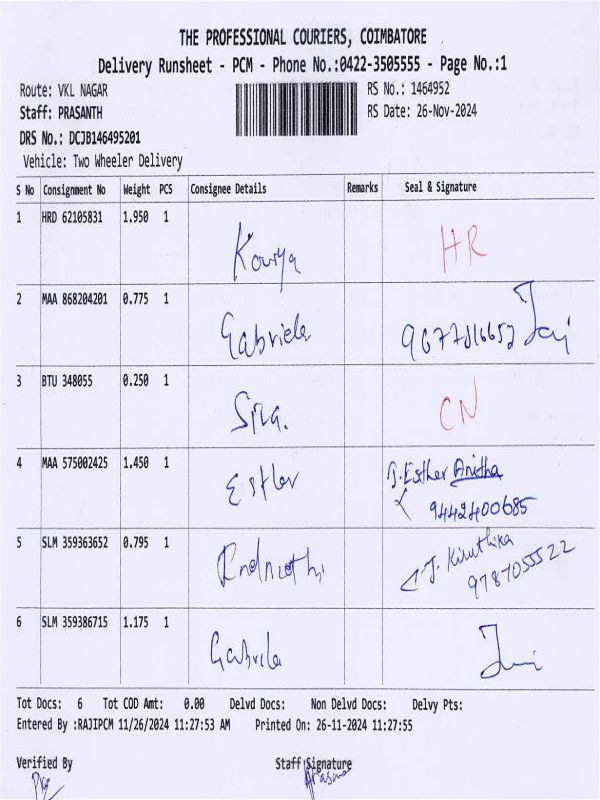 THE PROFESSIONAL COURIERS, COIMBATORE
Delivery Runsheet - PCM - Phone No.:0422-3505555 - Page No.:1
Route: VKL NAGAR RS No.: 1464952
Staff: PRASANTH RS Date: 26-Nov-2024
DRS No.: DCJB146495201
Vehicle: Two Wheeler Delivery
S No Consignment No Weight PCS Consignee Details Remarks Seal & Signature
1 HRD 62105831 1.950 1 HR
2 MAA 868204201 0.775 1 Gabriela
3 BTU 348055 0.250 1 Siva. CN
4 MAA 575002425 1.450 1 Esther J. Esther Anitha
9442400685
5 SLM 359363652 0.795 1 J. Kiruthika
9787055522
6 SLM 359386715 1.175 1 Gabriela
Tot Docs: 6 Tot COD Amt: 0.00 Delvd Docs: Non Delvd Docs: Delvy Pts:
Entered By :RAJIPCM 11/26/2024 11:27:53 AM Printed On: 26-11-2024 11:27:55
Verified By Staff Signature